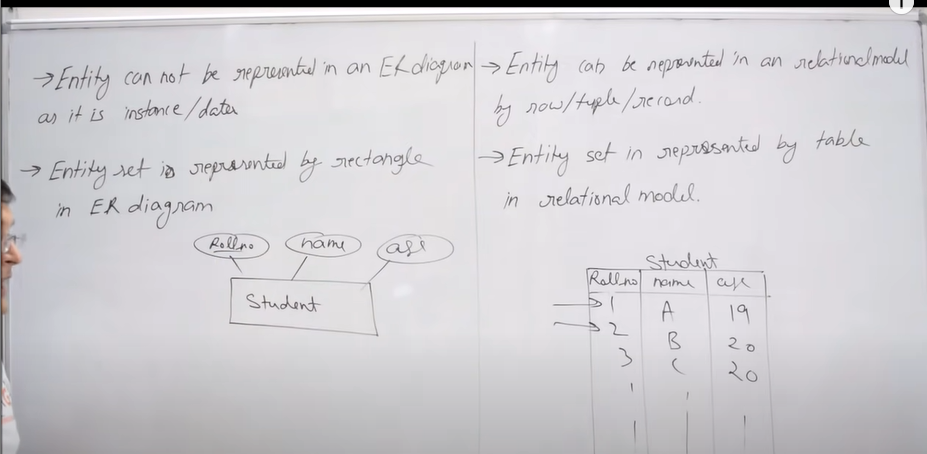 → Entity can not be represented in an ER diagram
as it is instance/data
→ Entity set is represented by rectangle
in ER diagram
Rollno name age
Student
→ Entity can be represented in an relational model
by row/tuple/record.
→ Entity set in represented by table
in relational model.
Student
Rollno name age
→ 1 A 19
→ 2 B 20
3 C 20